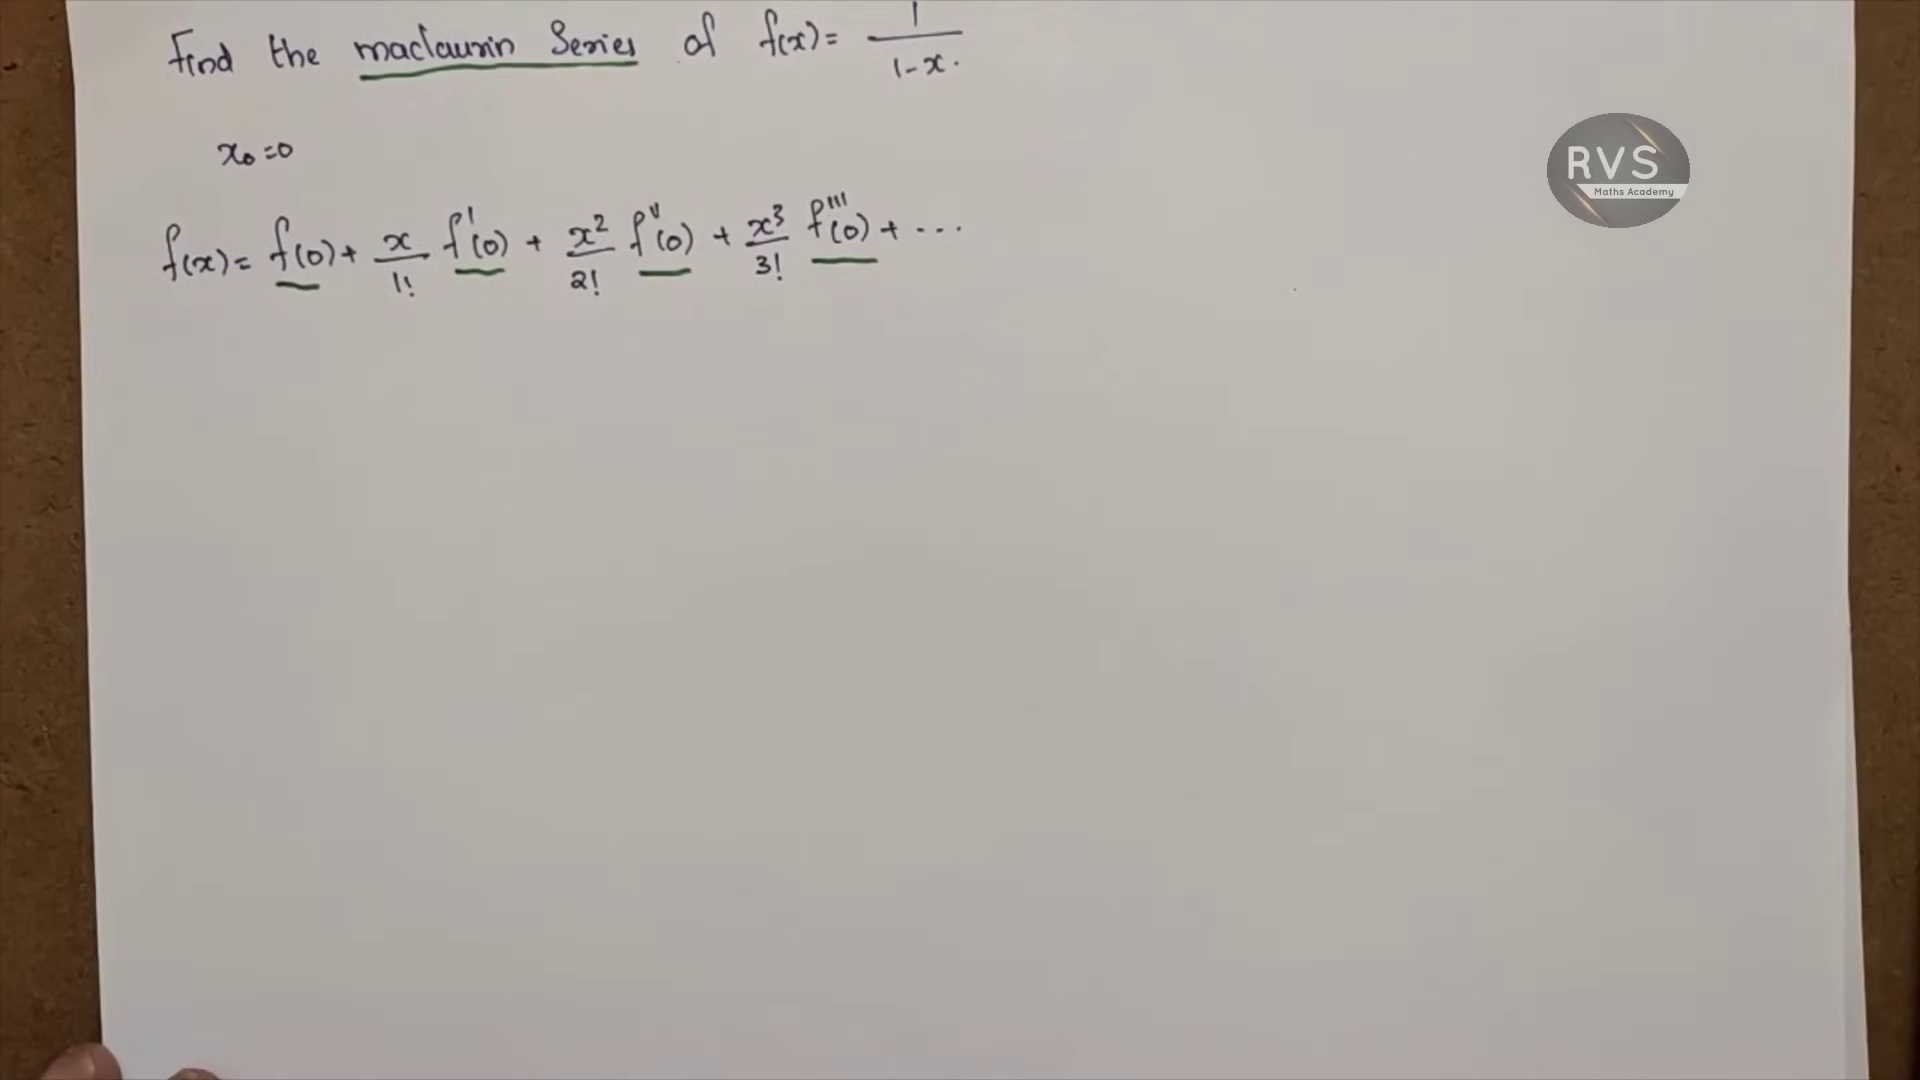 Find the maclaurin Series of f(x) = 1/(1-x).
x₀ = 0
f(x) = f(0) + x/1! f'(0) + x²/2! f''(0) + x³/3! f'''(0) + ...
RVS
Maths Academy